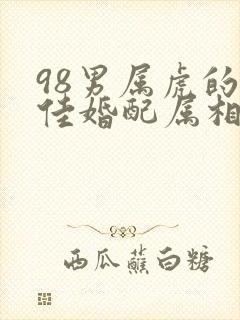 98男属虎的
佳婚配属相
西瓜蘸白糖